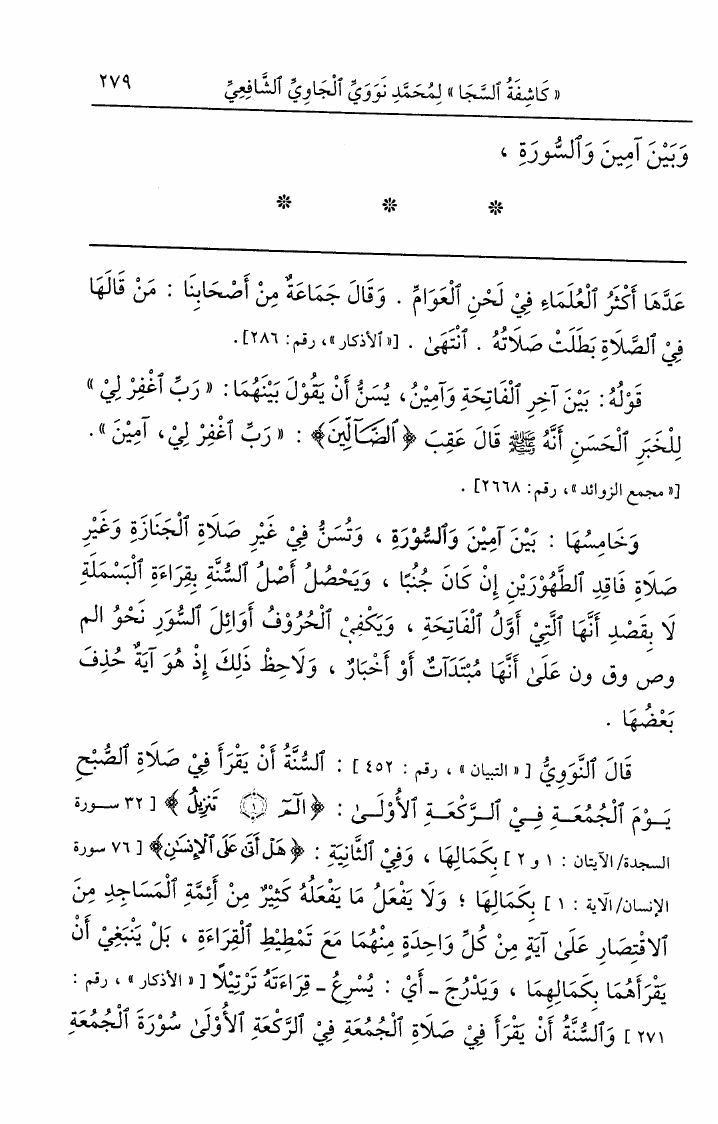 « كَاشِفَةُ ٱلسَّجَا » لِمُحَمَّدِ نَوَوِيِّ ٱلْجَاوِيِّ ٱلشَّافِعِيِّ ٢٧٩
وَبَيْنَ آمِينَ وَٱلسُّورَةِ ،
* * *
عَدَّهَا أَكْثَرُ ٱلْعُلَمَاءِ فِيْ لَحْنِ ٱلْعَوَامِّ . وَقَالَ جَمَاعَةٌ مِنْ أَصْحَابِنَا : مَنْ قَالَهَا
فِيْ ٱلصَّلَاةِ بَطَلَتْ صَلَاتُهُ . ٱنْتَهَىٰ . [« ٱلأذكار »، رقم: ٢٨٦].
قَوْلُهُ: بَيْنَ آخِرِ ٱلْفَاتِحَةِ وَآمِيْنُ، يُسَنُّ أَنْ يَقُوْلَ بَيْنَهُمَا: « رَبِّ ٱغْفِرْ لِيْ »
لِلْخَبَرِ ٱلْحَسَنِ أَنَّهُ ﷺ قَالَ عَقِبَ ﴿ ٱلضَّآلِّينَ﴾ : « رَبِّ ٱغْفِرْ لِيْ، آمِيْنَ ».
[« مجمع الزوائد »، رقم: ٢٦٦٨] .
وَخَامِسُهَا : بَيْنَ آمِيْنَ وَٱلسُّوْرَةِ ، وَتُسَنُّ فِيْ غَيْرِ صَلَاةِ ٱلْجَنَازَةِ وَغَيْرِ
صَلَاةِ فَاقِدِ ٱلطَّهُوْرَيْنِ إِنْ كَانَ جُنُبًا ، وَيَحْصُلُ أَصْلُ ٱلسُّنَّةِ بِقِرَاءَةِ ٱلْبَسْمَلَةِ
لَا بِقَصْدِ أَنَّهَا ٱلَّتِيْ أَوَّلُ ٱلْفَاتِحَةِ ، وَيَكْفِيْ ٱلْحُرُوْفُ أَوَائِلَ ٱلسُّوَرِ نَحْوُ الم
وص وق ون عَلَىٰ أَنَّهَا مُبْتَدَآتٌ أَوْ أَخْبَارٌ ، وَلَاحِظْ ذَلِكَ إِذْ هُوَ آيَةٌ حُذِفَ
بَعْضُهَا .
قَالَ ٱلنَّوَوِيُّ [ « التبيان » ، رقم : ٤٥٢ ] : ٱلسُّنَّةُ أَنْ يَقْرَأَ فِيْ صَلَاةِ ٱلصُّبْحِ
يَوْمَ ٱلْجُمُعَةِ فِيْ ٱلرَّكْعَةِ ٱلأُوْلَىٰ : ﴿ الٓمٓ ۝١ تَنزِيلُ ﴾ [ ٣٢ سورة
السجدة/الآيتان : ١ و ٢ ] بِكَمَالِهَا ، وَفِيْ ٱلثَّانِيَةِ : ﴿ هَلْ أَتَىٰ عَلَى ٱلْإِنسَٰنِ﴾ [ ٧٦ سورة
الإنسان/الآية : ١ ] بِكَمَالِهَا ؛ وَلَا يَفْعَلُ مَا يَفْعَلُهُ كَثِيْرٌ مِنْ أَئِمَّةِ ٱلْمَسَاجِدِ مِنَ
ٱلاقْتِصَارِ عَلَىٰ آيَةٍ مِنْ كُلِّ وَاحِدَةٍ مِنْهُمَا مَعَ تَمْطِيْطِ ٱلْقِرَاءَةِ ، بَلْ يَنْبَغِيْ أَنْ
يَقْرَأَهُمَا بِكَمَالِهِمَا ، وَيَدْرُجَ - أَيْ : يُسْرِعُ - قِرَاءَتَهُ تَرْتِيْلًا [ « الأذكار » ، رقم :
٢٧١ ] وَٱلسُّنَّةُ أَنْ يَقْرَأَ فِيْ صَلَاةِ ٱلْجُمُعَةِ فِيْ ٱلرَّكْعَةِ ٱلأُوْلَىٰ سُوْرَةَ ٱلْجُمُعَةِ